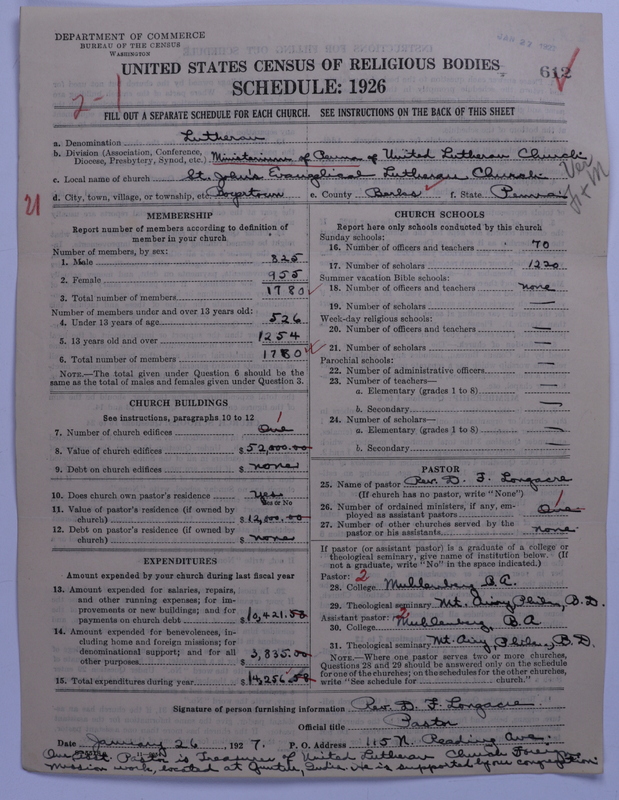 DEPARTMENT OF COMMERCE
BUREAU OF THE CENSUS
WASHINGTON
UNITED STATES CENSUS OF RELIGIOUS BODIES
612
SCHEDULE: 1926
2-1
FILL OUT A SEPARATE SCHEDULE FOR EACH CHURCH. SEE INSTRUCTIONS ON THE BACK OF THIS SHEET
a. Denomination Lutheran
b. Division (Association, Conference, Diocese, Presbytery, Synod, etc.) Ministerium of Penna. of United Lutheran Church
c. Local name of church St. John's Evangelical Lutheran Church
d. City, town, village, or township, etc. Boyertown e. County Berks f. State Penna.
21
MEMBERSHIP
Report number of members according to definition of
member in your church
Number of members, by sex:
1. Male 825
2. Female 955
3. Total number of members 1780
Number of members under and over 13 years old:
4. Under 13 years of age 526
5. 13 years old and over 1254
6. Total number of members 1780
NOTE.—The total given under Question 6 should be
same as the total of males and females given under Question 3.
CHURCH BUILDINGS
See instructions, paragraphs 10 to 12
1
7. Number of church edifices One
8. Value of church edifices $52,000.00
9. Debt on church edifices $none
10. Does church own pastor's residence Yes
Yes or No
11. Value of pastor's residence (if owned by
church) $12,000.00
12. Debt on pastor's residence (if owned by
church) $none
EXPENDITURES
Amount expended by your church during last fiscal year
13. Amount expended for salaries, repairs,
and other running expenses; for im-
provements or new buildings; and for
payments on church debt $10,421.50
14. Amount expended for benevolences, in-
cluding home and foreign missions; for
denominational support; and for all
other purposes $3,835.00
15. Total expenditures during year $14,256.50
CHURCH SCHOOLS
Report here only schools conducted by this church
Sunday schools:
16. Number of officers and teachers 70
17. Number of scholars 1220
Summer vacation Bible schools:
18. Number of officers and teachers none
19. Number of scholars —
Week-day religious schools:
20. Number of officers and teachers —
21. Number of scholars —
Parochial schools:
22. Number of administrative officers —
23. Number of teachers—
a. Elementary (grades 1 to 8) —
b. Secondary —
24. Number of scholars—
a. Elementary (grades 1 to 8) —
b. Secondary —
PASTOR
25. Name of pastor Rev. D. F. Longacre
(If church has no pastor, write "None")
1
26. Number of ordained ministers, if any, em-
ployed as assistant pastors One
27. Number of other churches served by the
pastor or his assistants none
If pastor (or assistant pastor) is a graduate of a college or
theological seminary, give name of institution below. (If
not a graduate, write "No" in the space indicated.)
Pastor: 2
28. College Muhlenberg B.A.
29. Theological seminary Mt. Airy, Phila., B.D.
Assistant pastor: 2
30. College Muhlenberg, B.A.
31. Theological seminary Mt. Airy, Phila., B.D.
NOTE.—Where one pastor serves two or more churches,
Questions 28 and 29 should be answered only on the schedule
for one of the churches; on the schedules for the other churches,
write "See schedule for church."
Signature of person furnishing information Rev. D. F. Longacre
Official title Pastor
Date January 26 1927. P. O. Address 115 N. Reading Ave.
Pastor is Treasurer of United Lutheran Church Foreign
mission work, located at India. He is supported by our congregation